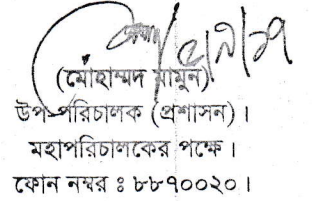 (মোহাম্মদ মামুন)
উপ-পরিচালক (প্রশাসন)।
মহাপরিচালকের পক্ষে।
ফোন নম্বর ঃ ৮৮৭০০২০।